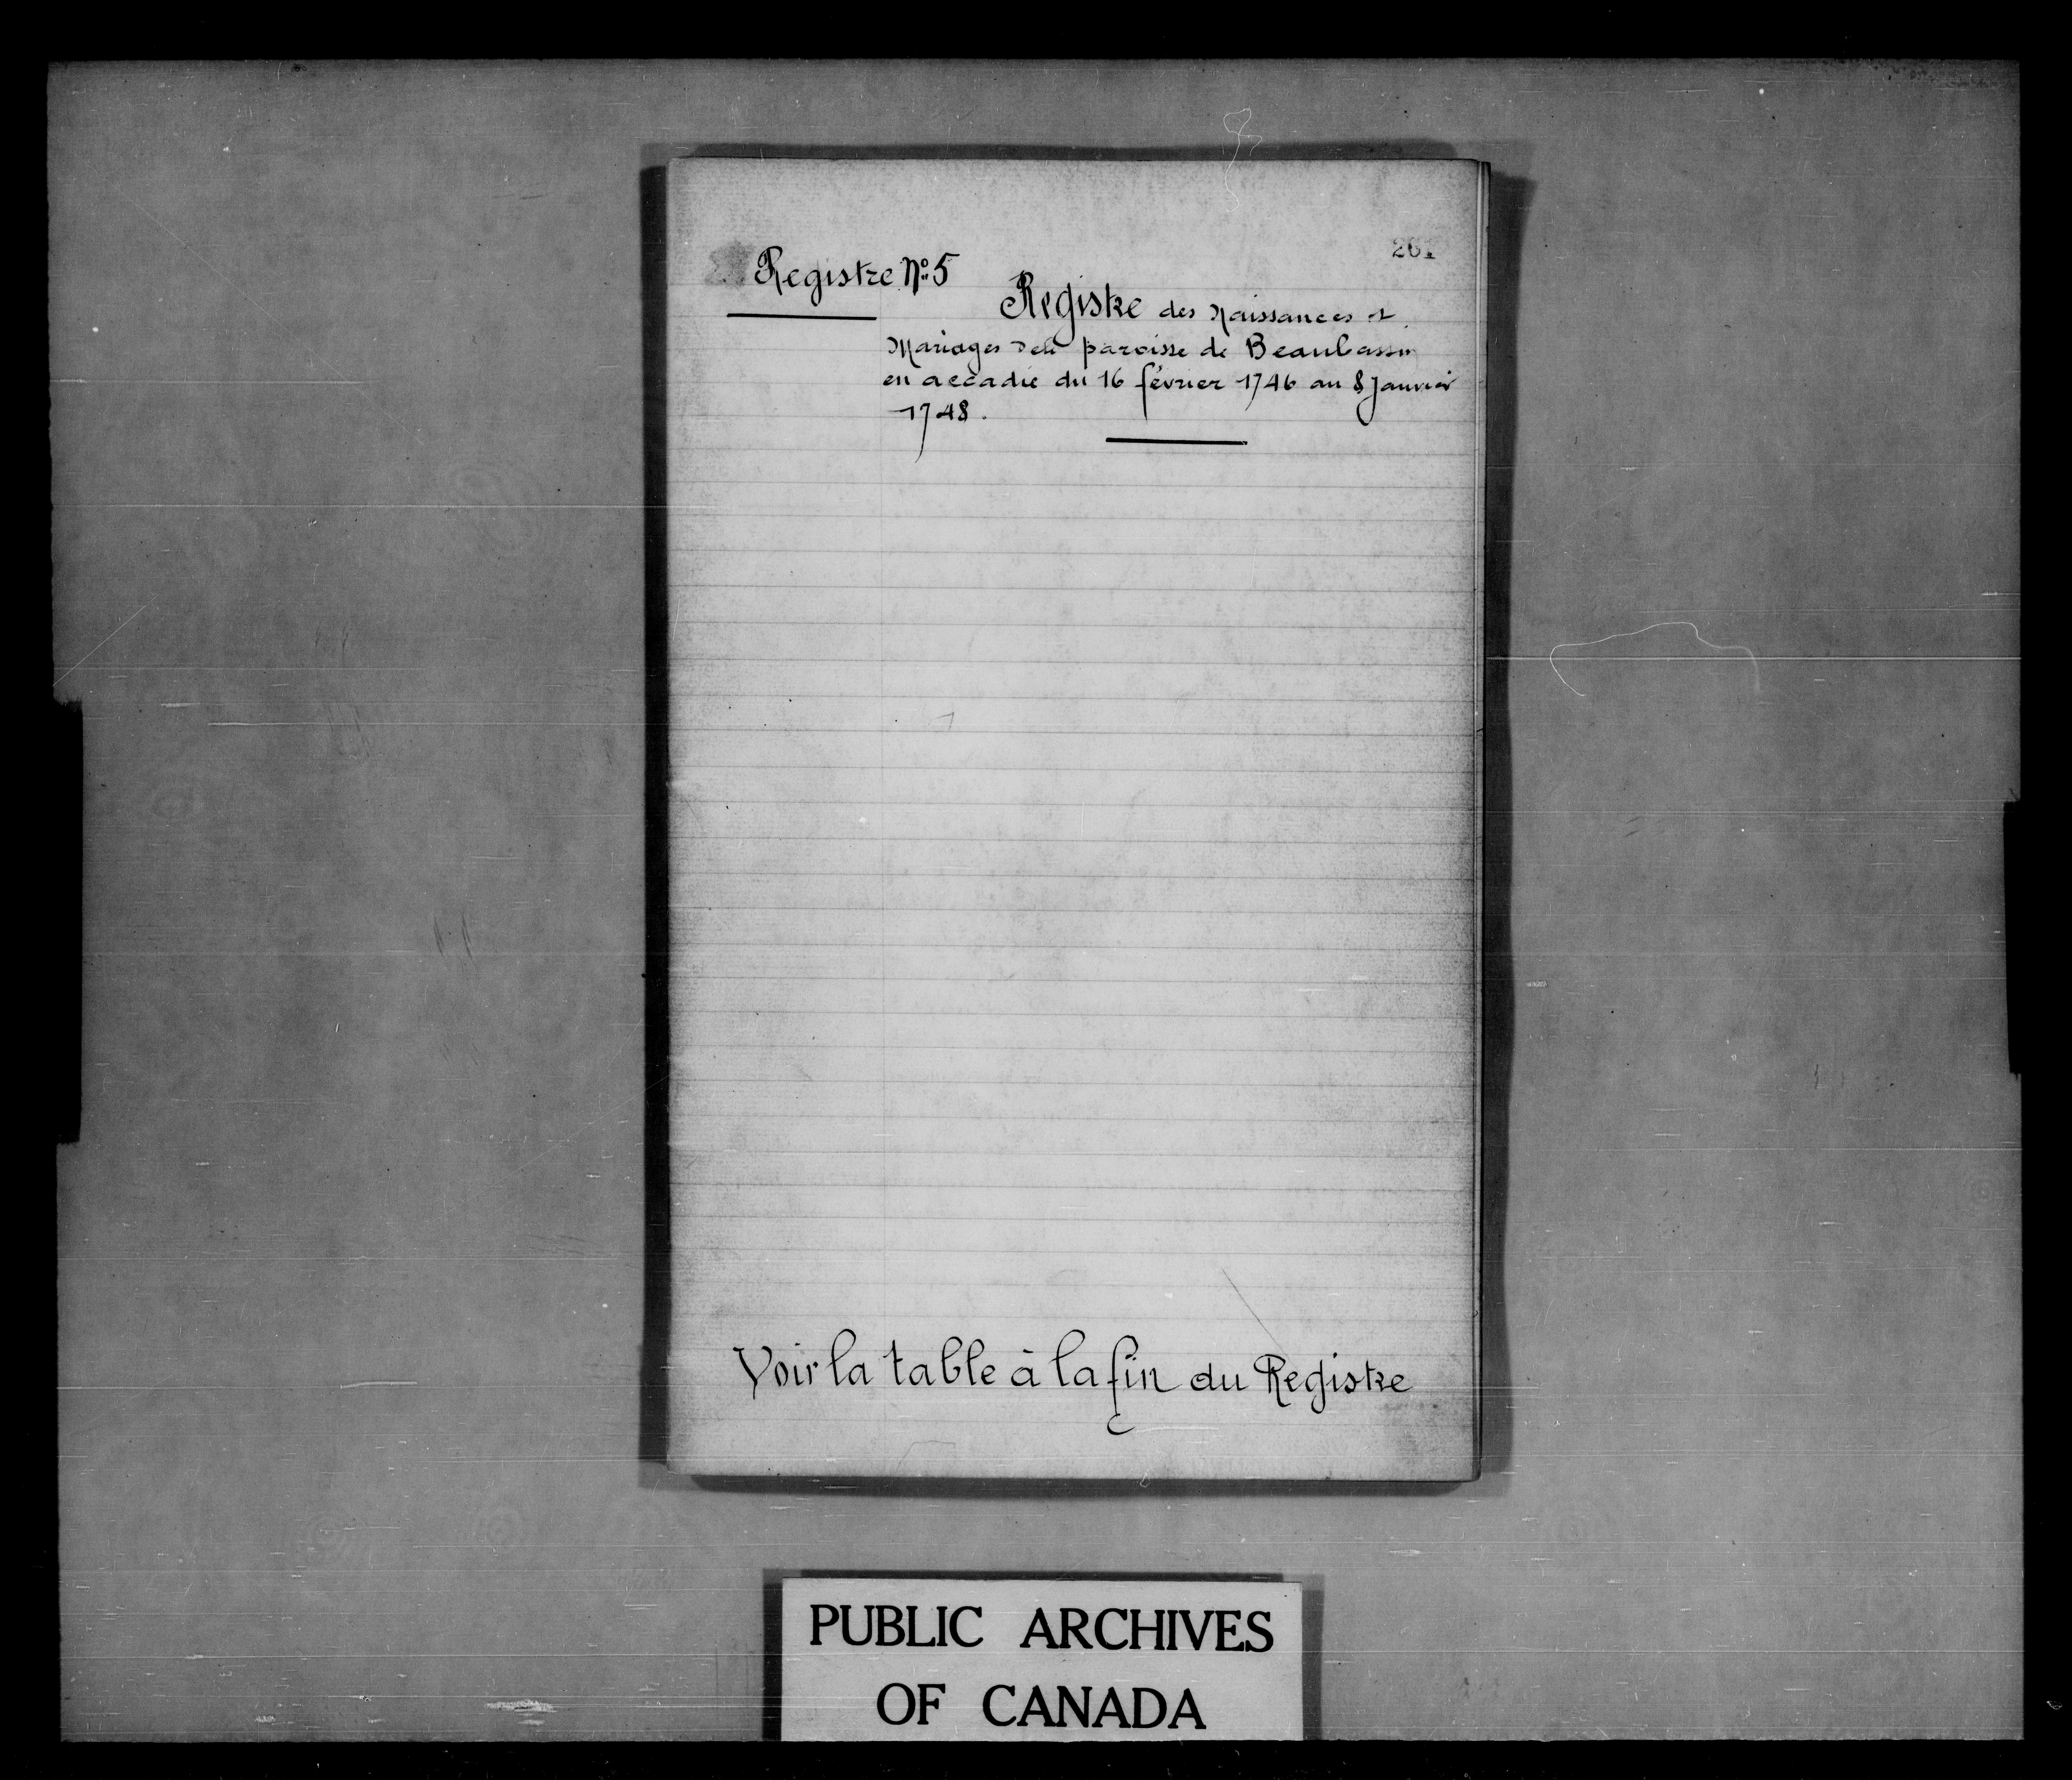 261
Registre No 5
Registre des Naissances et
Mariages dela paroisse de Beaubassin
en accadie du 16 février 1746 au 8 Janvier
1748.
Voir la table à la fin du Registre
PUBLIC ARCHIVES
OF CANADA